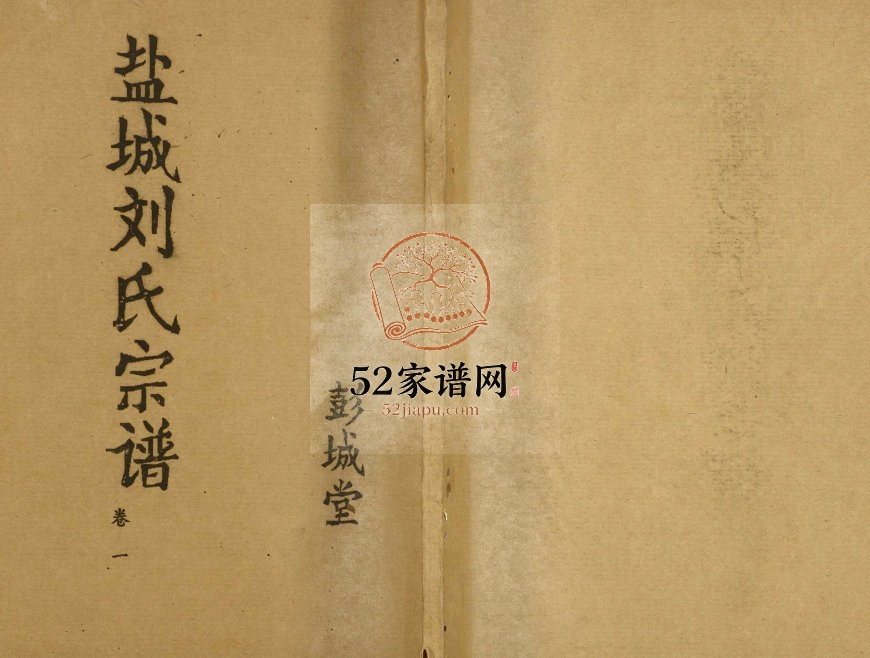 盐城刘氏宗谱
卷一
彭城堂
52家谱网
52jiapu.com